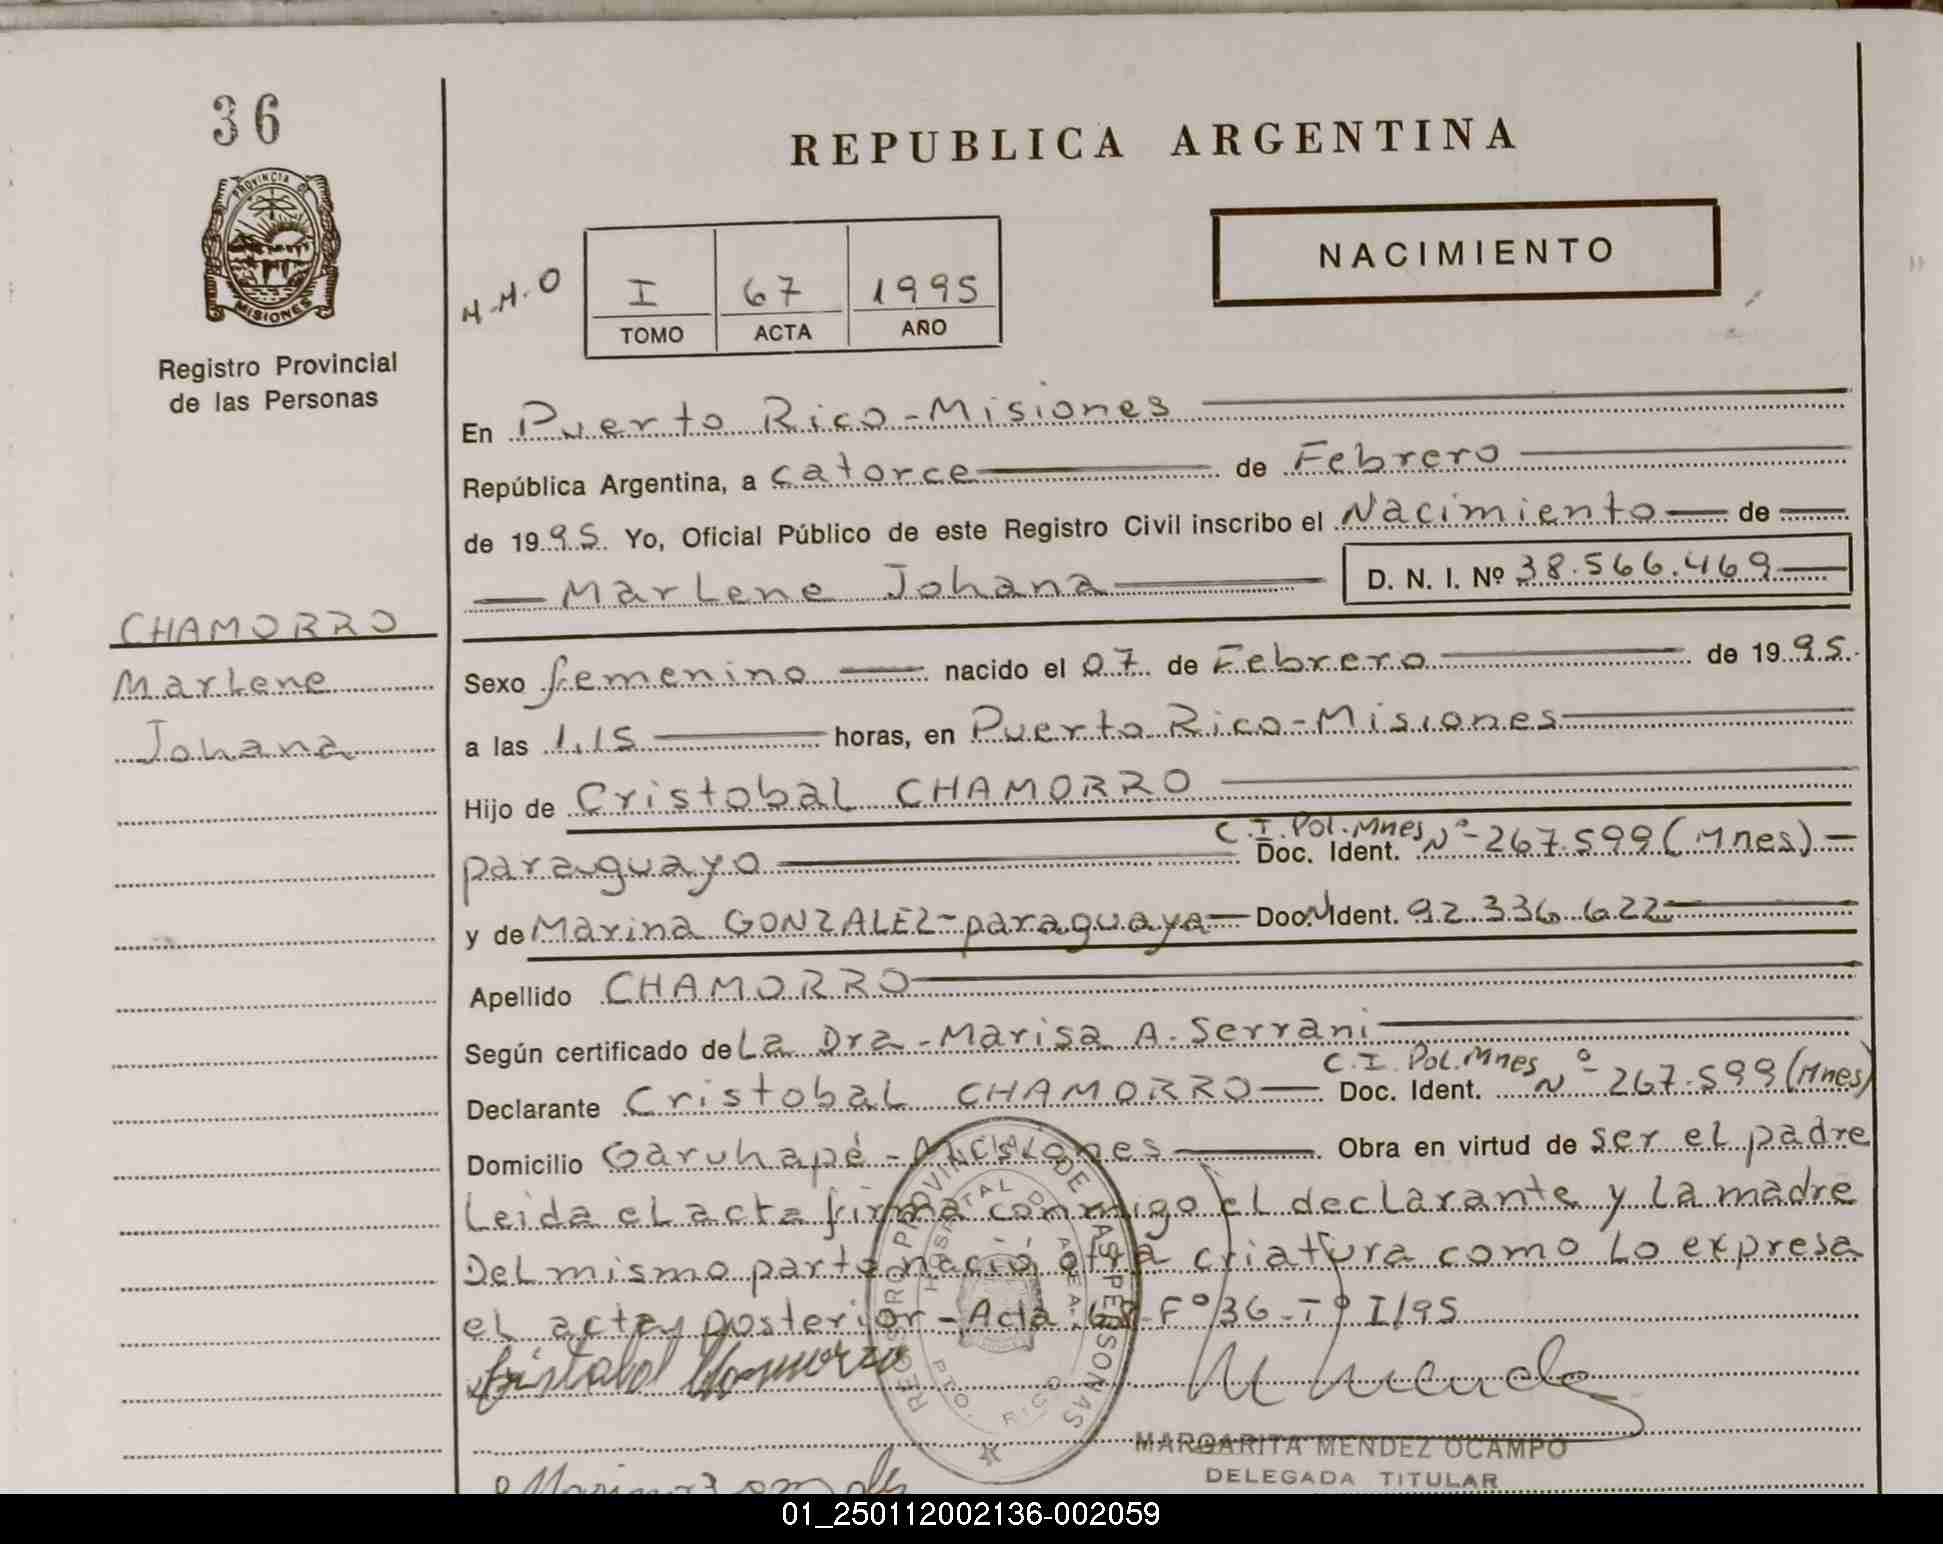 36
PROVINCIA DE
MISIONES
Registro Provincial
de las Personas
REPUBLICA ARGENTINA
NACIMIENTO
I 67 1995
TOMO ACTA AÑO
En Puerto Rico - Misiones
República Argentina, a catorce de Febrero
de 1995. Yo, Oficial Público de este Registro Civil inscribo el Nacimiento de
Marlene Johana D. N. I. Nº 38.566.469
CHAMORRO
Marlene
Johana
Sexo femenino nacido el 07 de Febrero de 1995.
a las 1,15 horas, en Puerto Rico - Misiones
Hijo de Cristobal CHAMORRO
C.I. Pol. Mnes
paraguayo Doc. Ident. Nº 267.599 (Mnes)
y de Marina GONZALEZ - paraguaya Doc. Ident. 92.336.622
Apellido CHAMORRO
Según certificado de La Dra - Marisa A. Serrani
C.I. Pol. Mnes
Declarante Cristobal CHAMORRO Doc. Ident. Nº 267.599 (Mnes)
Domicilio Garuhapé - Misiones Obra en virtud de ser el padre
Leida el acta firma conmigo el declarante y la madre
Del mismo parto nació otra criatura como lo expresa
el acta posterior - Acta 68 - Fº 36 - Tº I/95
REGISTRO PROVINCIAL DE LAS PERSONAS
HOSPITAL DE AREA
PTO. RICO
Cristobal Chamorro
MARGARITA MENDEZ OCAMPO
DELEGADA TITULAR
01_250112002136-002059